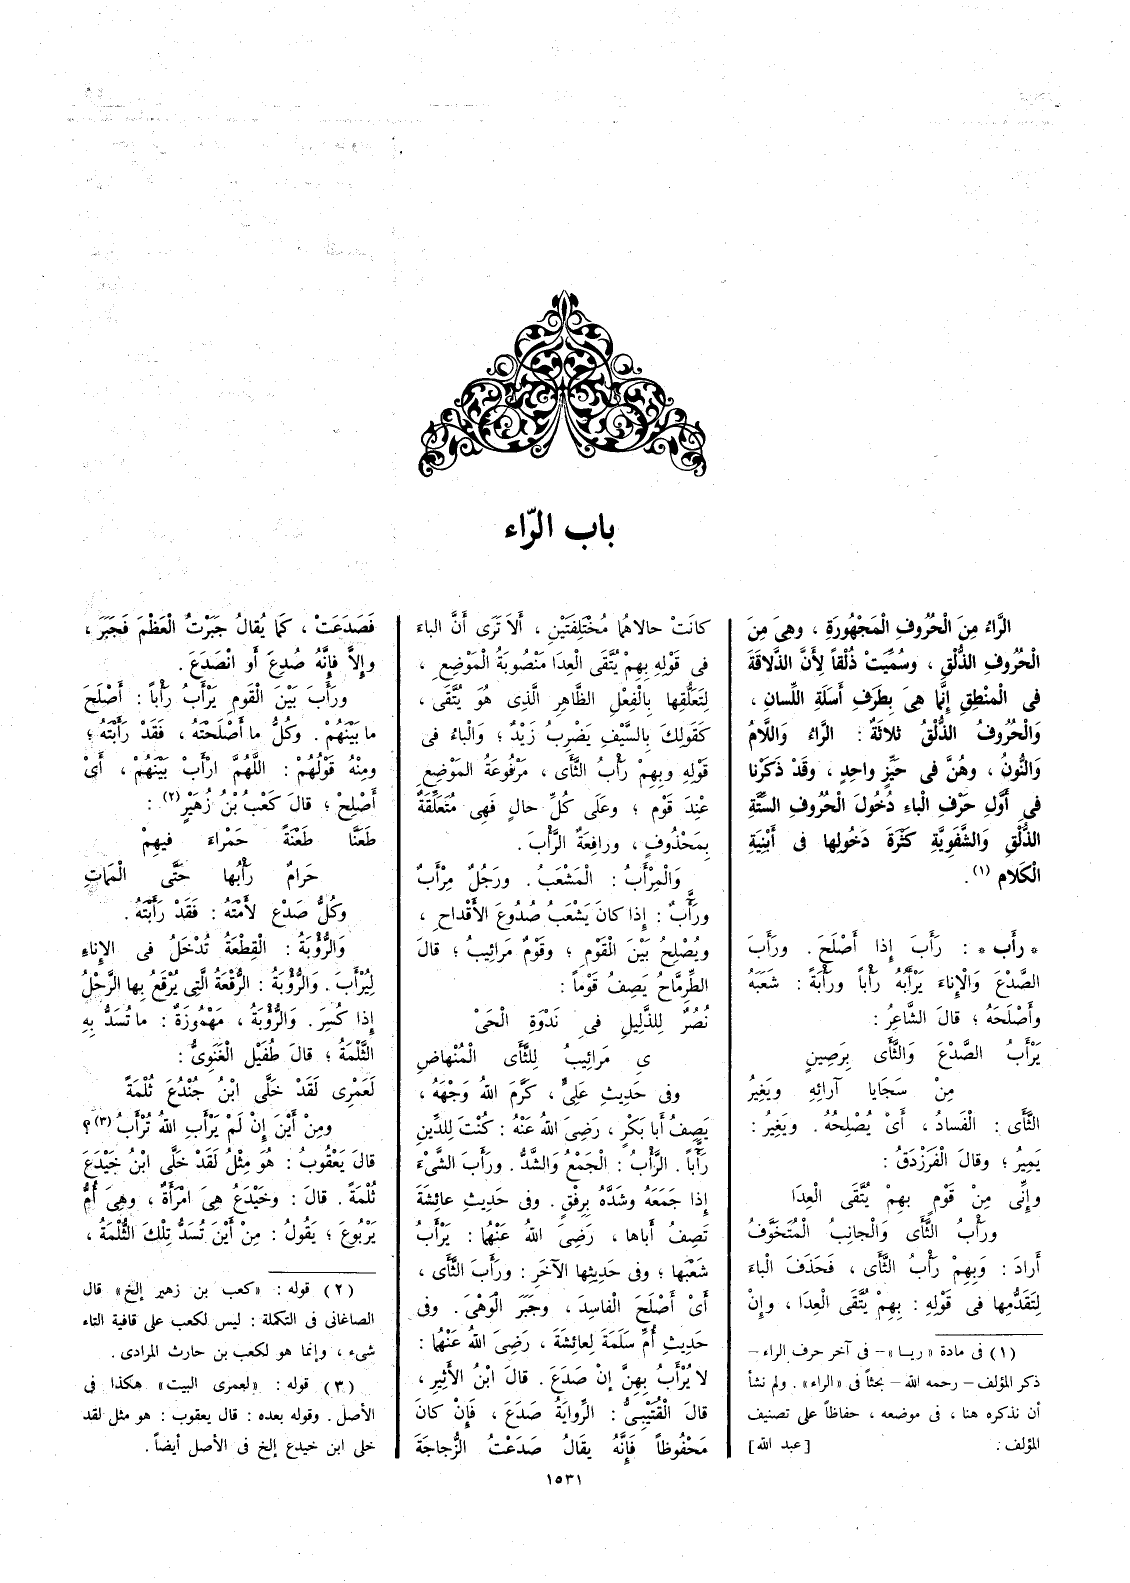 باب الرّاء
الرَّاءُ مِنَ الْحُرُوفِ الْمَجْهُورَةِ ، وهِىَ مِنَ
الْحُرُوفِ الذُّلْقِ ، وسُمِّيَتْ ذُلْقاً لِأَنَّ الذَّلاقَةَ
فى الْمَنْطِقِ إِنَّما هِىَ بِطَرَفِ أَسَلَةِ اللِّسانِ ،
وَالْحُرُوفُ الذُّلْقُ ثَلاثَةٌ : الرَّاءُ وَاللَّامُ
وَالنُّونُ ، وهُنَّ فى حَيِّزٍ واحِدٍ ، وقَدْ ذَكَرْنا
فى أَوَّلِ حَرْفِ الْباءِ دُخُولَ الْحُرُوفِ السِّتَّةِ
الذُّلْقِ وَالشَّفَوِيَّةِ كَثْرَةَ دَخُولِها فى أَبْنِيَةِ
الْكَلامِ (١).
* رأب * : رَأَبَ إِذا أَصْلَحَ. ورَأَبَ
الصَّدْعَ وَالْإِناءَ يَرْأَبُهُ رَأْباً ورَأْبَةً : شَعَبَهُ
وأَصْلَحَهُ ؛ قالَ الشَّاعِرُ :
يَرْأَبُ الصَّدْعَ وَالثَّأَى بِرَصِينٍ
مِنْ سَجَايا آرائِهِ ويَغِيرُ
الثَّأَى : الْفَسادُ ، أَىْ يُصْلِحُهُ. ويَغِيرُ :
يَمِيرُ ؛ وقالَ الْفَرَزْدَقُ :
وإِنِّى مِنْ قَوْمٍ بِهِمْ يُتَّقَى الْعِدَا
ورَأْبُ الثَّأَى وَالْجانِبُ الْمُتَخَوَّفُ
أَرادَ : وَبِهِمْ رَأْبُ الثَّأَى ، فَحَذَفَ الْباءَ
لِتَقَدُّمِها فى قَوْلِهِ : بِهِمْ يُتَّقَى الْعِدَا ، وإِنْ
(١) فى مادة «ريـا»- فى آخر حرف الراء-
ذكر المؤلف- رحمه الله- بحثاً فى «الراء». ولم نشأ
أن نذكره هنا ، فى موضعه ، حفاظاً على تصنيف
المؤلف: [عبد الله]
كانَتْ حالاهُما مُخْتَلِفَتَيْنِ ، أَلاَ تَرَى أَنَّ الباءَ
فى قَوْلِهِ بِهِمْ يُتَّقَى الْعِدَا مَنْصُوبَةُ الْمَوْضِعِ ،
لِتَعَلُّقِها بِالْفِعْلِ الظَّاهِرِ الَّذِى هُوَ يُتَّقَى ،
كَقَولِكَ بِالسَّيْفِ يَضْرِبُ زَيْدٌ ؛ وَالْباءُ فى
قَوْلِهِ وبِهِمْ رَأْبُ الثَّأَى ، مَرْفُوعَةُ الْمَوْضِعِ
عِنْدَ قَوْمٍ ؛ وعَلَى كُلِّ حالٍ فَهِىَ مُتَعَلِّقَةٌ
بِمَحْذُوفٍ ، ورافِعَةٌ الرَّأْبَ.
وَالْمِرْأَبُ : الْمَشْعَبُ. ورَجُلٌ مِرْأَبٌ
ورَأَّبٌ : إِذا كانَ يَشْعَبُ صُدُوعَ الأَقْداحِ ،
ويُصْلِحُ بَيْنَ الْقَوْمِ ؛ وقَوْمٌ مَرائِيبُ ؛ قالَ
الطِّرِمَّاحُ يَصِفُ قَوْماً :
نُصُرٌ لِلذَّلِيلِ فى نَدْوَةِ الْحَىْ
ىِ مَرائِيبُ لِلثَّأَى الْمُنْهاضِ
وفى حَدِيثِ عَلِىٍّ ، كَرَّمَ اللهُ وَجْهَهُ ،
يَصِفُ أَبا بَكْرٍ ، رَضِىَ اللهُ عَنْهُ : كُنْتَ لِلدِّينِ
رَأْباً. الرَّأْبُ : الْجَمْعُ وَالشَّدُّ. ورَأَبَ الشَّىْءَ
إِذا جَمَعَهُ وشَدَّهُ بِرِفْقٍ. وفى حَدِيثِ عائِشَةَ
تَصِفُ أَباها ، رَضِىَ اللهُ عَنْهُما : يَرْأَبُ
شَعْبَها ؛ وفى حَدِيثِها الآخَرِ : ورَأَبَ الثَّأَى ،
أَىْ أَصْلَحَ الْفاسِدَ ، وجَبَرَ الْوَهْىَ. وفى
حَدِيثِ أُمِّ سَلَمَةَ لِعائِشَةَ ، رَضِىَ اللهُ عَنْهُما :
لا يُرْأَبُ بِهِنَّ إِنْ صَدَعَ. قالَ ابْنُ الأَثِيرِ ،
قالَ الْقُتَيْبِىُّ : الرِّوايَةُ صَدَعَ ، فَإِنْ كانَ
مَحْفُوظاً فَإِنَّهُ يقَالُ صَدَعْتُ الزُّجاجَةَ
فَصَدَعَتْ ، كَما يُقالُ جَبَرْتُ الْعَظْمَ فَجَبَرَ ،
وإِلاَّ فَإِنَّهُ صُدِعَ أَوِ انْصَدَعَ.
ورَأَبَ بَيْنَ الْقَومِ يَرْأَبُ رَأْباً : أَصْلَحَ
ما بَيْنَهُمْ. وكُلُّ ما أَصْلَحْتَهُ ، فَقَدْ رَأَبْتَهُ ؛
ومِنْهُ قَوْلُهُمْ : اللَّهُمَّ ارْأَبْ بَيْنَهُمْ ، أَىْ
أَصْلِحْ ؛ قالَ كَعْبُ بْنُ زُهَيْرٍ (٢) :
طَعَنَّا طَعْنَةً حَمْراءَ فيهِمْ
حَرامٌ رَأْبُها حَتَّى الْمَماتِ
وكُلُّ صَدْعٍ لأَمْتَهُ : فَقَدْ رَأَبْتَهُ.
وَالرُّؤْبَةُ : الْقِطْعَةُ تُدْخَلُ فى الإِناءِ
لِيُرْأَبَ. وَالرُّؤْبَةُ : الرُّقْعَةُ الَّتِى يُرْقَعُ بِها الرَّحْلُ
إِذا كُسِرَ. وَالرُّؤْبَةُ ، مَهْمُوزَةٌ : ما تُسَدُّ بِهِ
الثَّلْمَةُ ؛ قالَ طُفَيْلٌ الْغَنَوِىُّ :
لَعَمْرِى لَقَدْ خَلَّى ابْنُ جُنْدُعَ ثُلْمَةً
ومِنْ أَيْنَ إِنْ لَمْ يَرْأَبِ اللهُ تُرْأَبُ (٣)؟
قالَ يَعْقُوبُ : هُوَ مِثْلُ لَقَدْ خَلَّى ابْنُ خَيْدَعَ
ثُلْمَةً. قالَ : وخَيْدَعُ هِىَ امْرَأَةٌ ، وهِىَ أُمُّ
يَرْبُوعَ ؛ يَقُولُ : مِنْ أَيْنَ تُسَدُّ تِلْكَ الثُّلْمَةُ ،
(٢) قوله : «كعب بن زهير إلخ» قال
الصاغانى فى التكملة : ليس لكعب على قافية التاء
شىء ، وإنما هو لكعب بن حارث المرادى.
(٣) قوله : «لعمرى البيت» هكذا فى
الأصل. وقوله بعده : قال يعقوب : هو مثل لقد
خلى ابن خيدع إلخ فى الأصل أيضاً.
١٥٣١